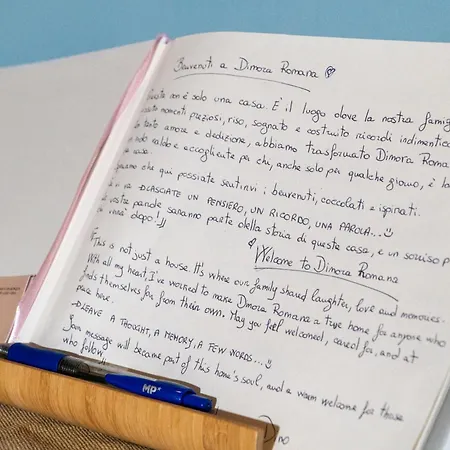 Benvenuti a Dimora Romana
Questa non è solo una casa. È il luogo dove la nostra famig
momenti preziosi, riso, sognato e costruito ricordi indimentica
tanto amore e dedizione, abbiamo trasformato Dimora Roma
nido caldo e accogliente per chi, anche solo per qualche giorno, è lo
casa.
che qui possiate sentirvi i benvenuti, coccolati e ispirati.
va → LASCIATE UN PENSIERO, UN RICORDO, UNA PAROLA...
vostre parole saranno parte della storia di questa casa, e un sorriso p
verrà dopo!
Welcome to Dimora Romana
This is not just a house. It's where our family shared laughter, love and memories.
With all my heart, I've worked to make Dimora Romana a true home for anyone who
finds themselves far from their own. May you feel welcomed, cared for, and at
peace here.
→ LEAVE A THOUGHT, A MEMORY, A FEW WORDS...
Your message will became part of this home's soul, and a warm welcome for those
who follow!!
Dino
MP